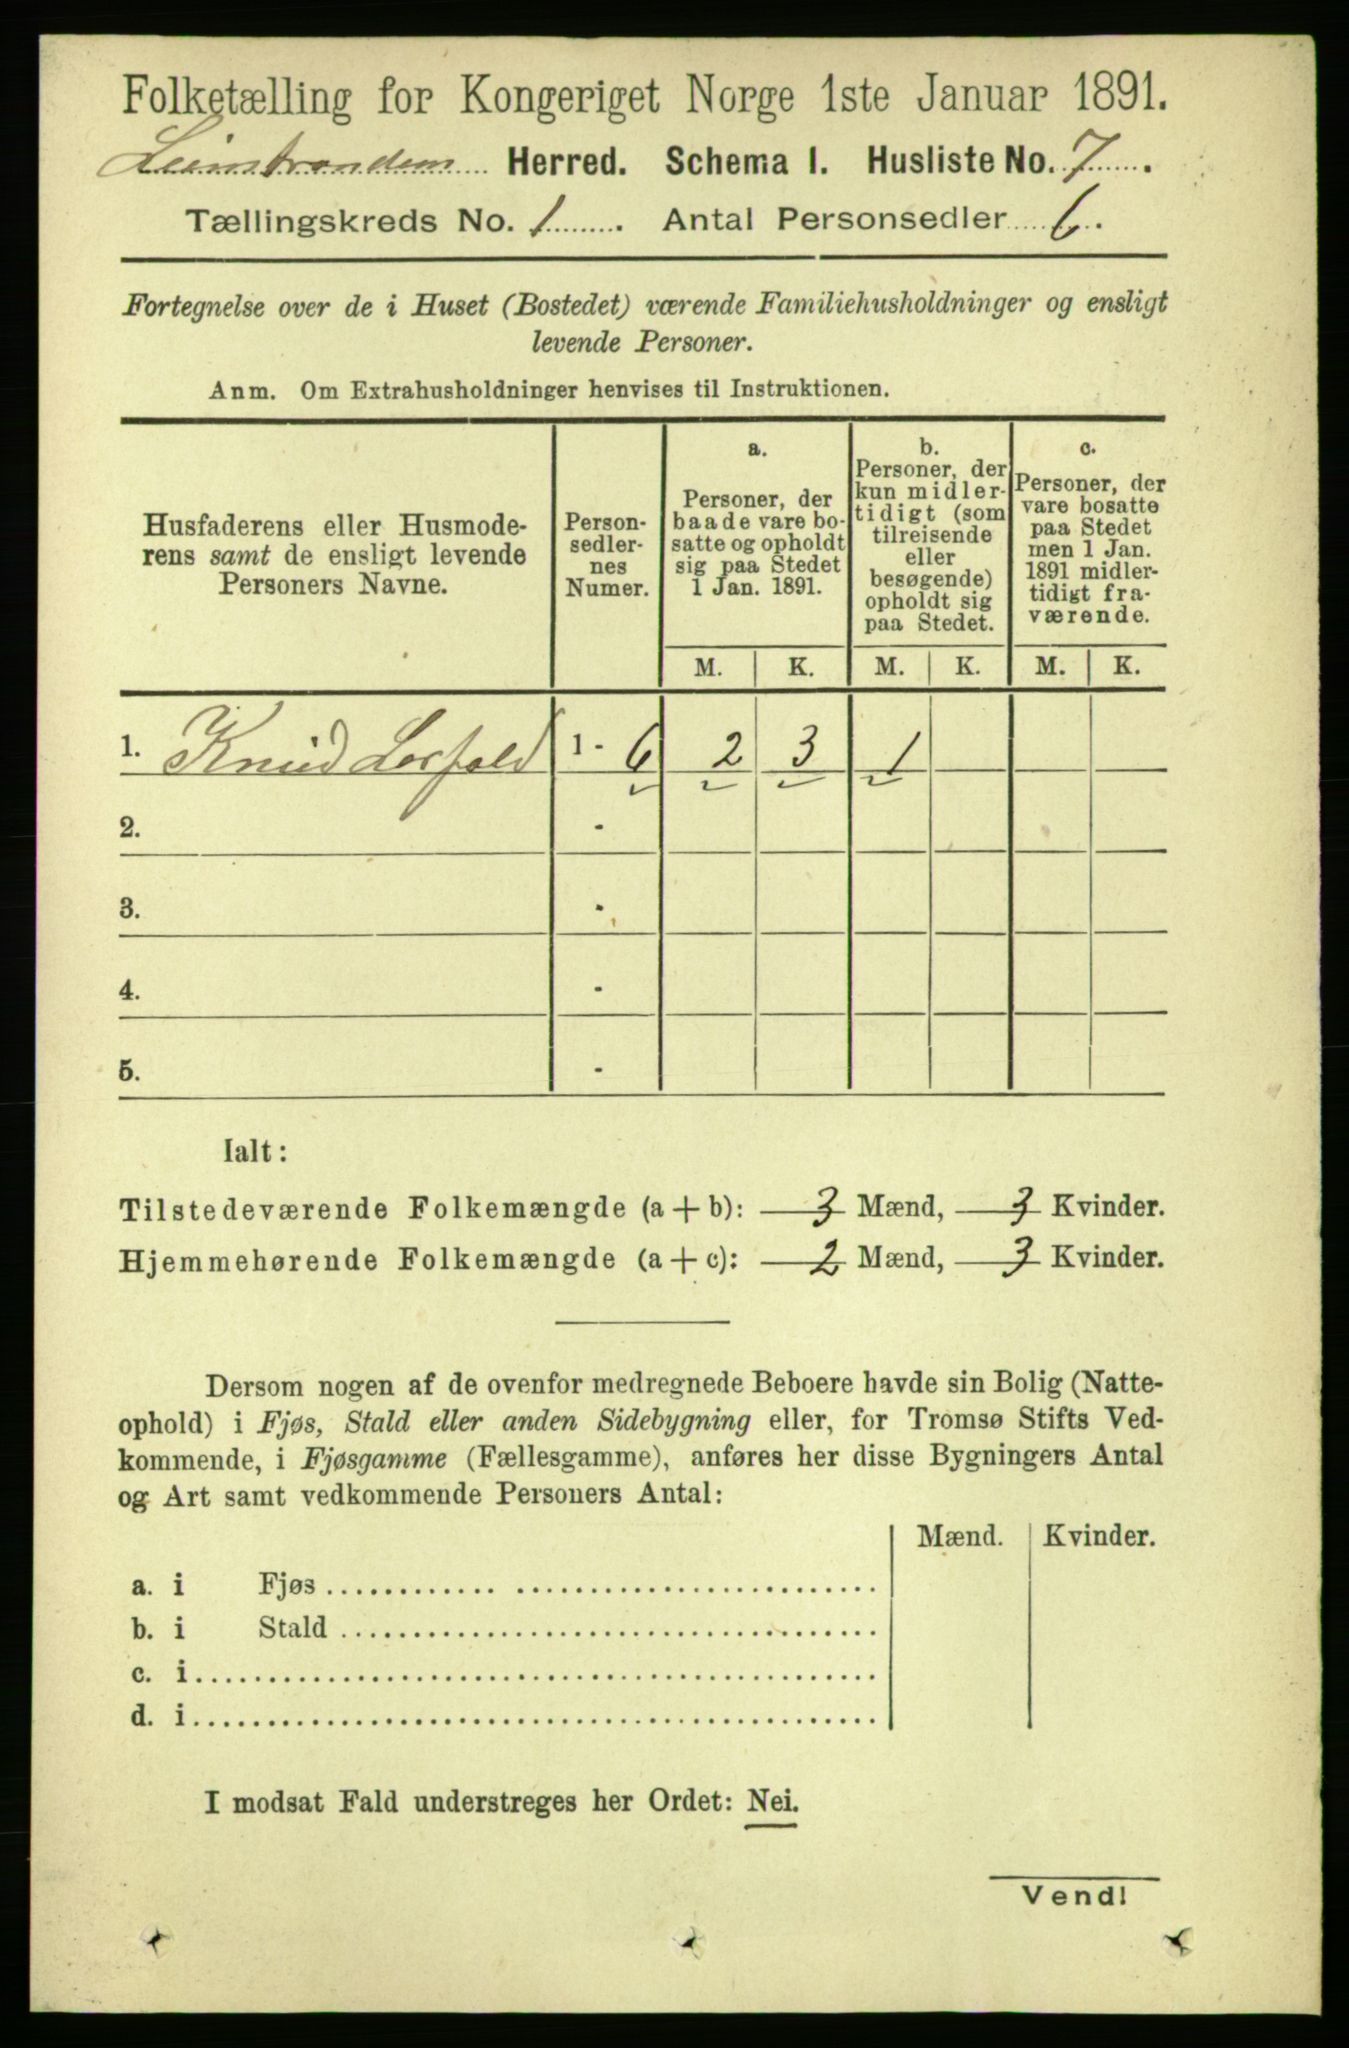 Folketælling for Kongeriget Norge 1ste Januar 1891.
Leinstranden Herred. Schema I. Husliste No. 7.
Tællingskreds No. 1. Antal Personsedler 6.
Fortegnelse over de i Huset (Bostedet) værende Familiehusholdninger og ensligt
levende Personer.
Anm. Om Extrahusholdninger henvises til Instruktionen.
Husfaderens eller Husmode-
rens samt de ensligt levende
Personers Navne.
Person-
sedler-
nes
Numer.
a.
Personer, der
baade vare bo-
satte og opholdt
sig paa Stedet
1 Jan. 1891.
b.
Personer, der
kun midler-
tidigt (som
tilreisende
eller
besøgende)
opholdt sig
paa Stedet.
c.
Personer, der
vare bosatte
paa Stedet
men 1 Jan.
1891 midler-
tidigt fra-
værende.
M. K. M. K. M. K.
1. Knud 1 - 6 2 3 1
2. -
3. -
4. -
5. -
Ialt:
Tilstedeværende Folkemængde (a + b): 3 Mænd, 3 Kvinder.
Hjemmehørende Folkemængde (a + c): 2 Mænd, 3 Kvinder.
Dersom nogen af de ovenfor medregnede Beboere havde sin Bolig (Natte-
ophold) i Fjøs, Stald eller anden Sidebygning eller, for Tromsø Stifts Ved-
kommende, i Fjøsgamme (Fællesgamme), anføres her disse Bygningers Antal
og Art samt vedkommende Personers Antal:
Mænd. Kvinder.
a. i Fjøs
b. i Stald
c. i
d. i
I modsat Fald understreges her Ordet: Nei.
Vend!